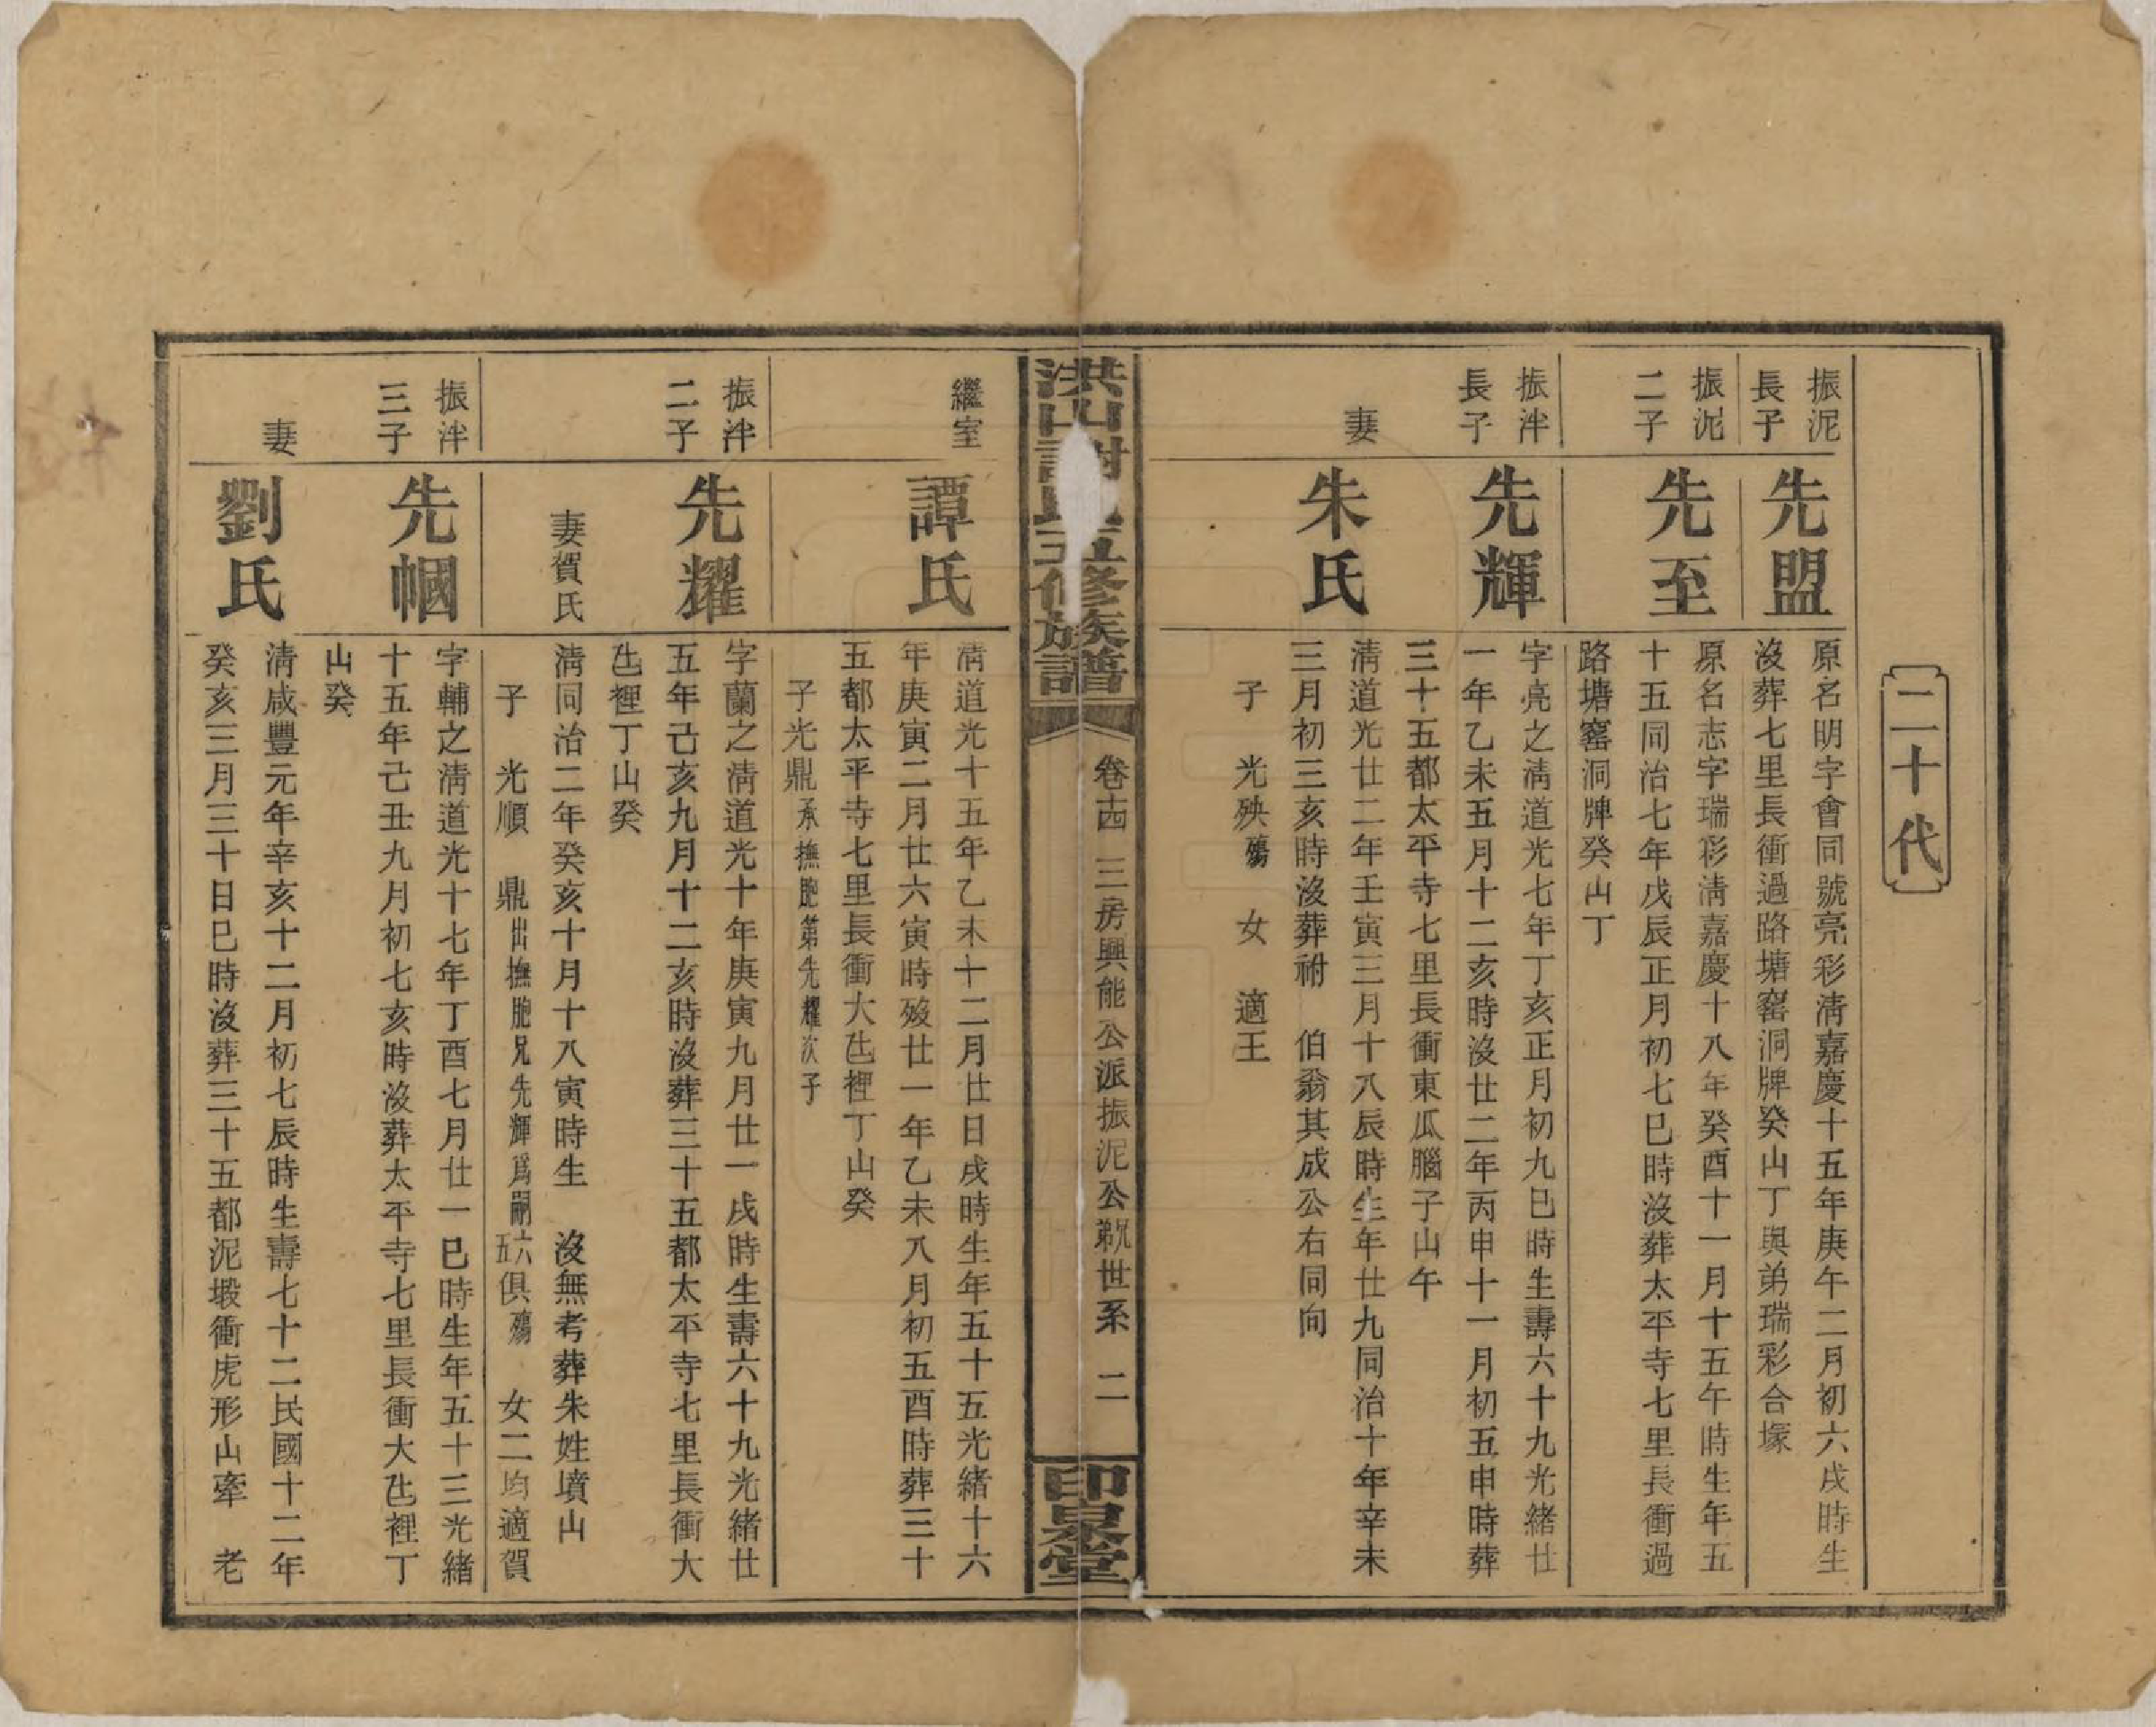 二十代
振泥
長子
先盟
原名明字會同號亮彩淸嘉慶十五年庚午二月初六戌時生
沒葬七里長衝過路塘窰洞牌癸山丁與弟瑞彩合塚
振泥
二子
先至
原名志字瑞彩淸嘉慶十八年癸酉十一月十五午時生年五
十五同治七年戊辰正月初七巳時沒葬太平寺七里長衝過
路塘窰洞牌癸山丁
振泮
長子
先輝
字亮之淸道光七年丁亥正月初九巳時生壽六十九光緒廿
一年乙未五月十二亥時沒廿二年丙申十一月初五申時葬
三十五都太平寺七里長衝東瓜腦子山午
妻
朱氏
淸道光廿二年壬寅三月十八辰時生年廿九同治十年辛未
三月初三亥時沒葬祔 伯翁其成公右同向
子 光殃殤 女 適王
洪山謝氏五修族譜
卷十四 三房興能公派振泥公派世系 二
印泉堂
繼室
譚氏
淸道光十五年乙未十二月廿日戌時生年五十五光緒十六
年庚寅二月廿六寅時歿廿一年乙未八月初五酉時葬三十
五都太平寺七里長衝大凼裡丁山癸
子光鼎承撫胞弟先耀次子
振泮
二子
先耀
字蘭之淸道光十年庚寅九月廿一戌時生壽六十九光緒廿
五年己亥九月十二亥時沒葬三十五都太平寺七里長衝大
凼裡丁山癸
妻賀氏
淸同治二年癸亥十月十八寅時生 沒無考葬朱姓墳山
子 光順 鼎出撫胞兄先輝爲嗣五六俱殤 女二均適賀
振泮
三子
先幗
字輔之淸道光十七年丁酉七月廿一巳時生年五十三光緒
十五年己丑九月初七亥時沒葬太平寺七里長衝大凼裡丁
山癸
妻
劉氏
淸咸豐元年辛亥十二月初七辰時生壽七十二民國十二年
癸亥三月三十日巳時沒葬三十五都泥塅衝虎形山牽 老